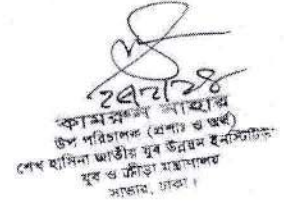 ২৫/২/২৪
কামরুন নাহার
উপ পরিচালক (প্রশাঃ ও অর্থ)
শেখ হাসিনা জাতীয় যুব উন্নয়ন ইনস্টিটিউট
যুব ও ক্রীড়া মন্ত্রণালয়
সাভার, ঢাকা।